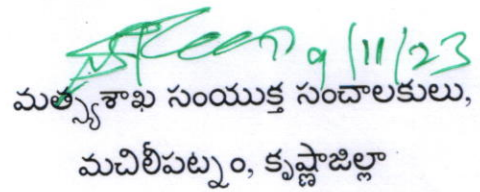 9/11/23
మత్స్యశాఖ సంయుక్త సంచాలకులు,
మచిలీపట్నం, కృష్ణాజిల్లా